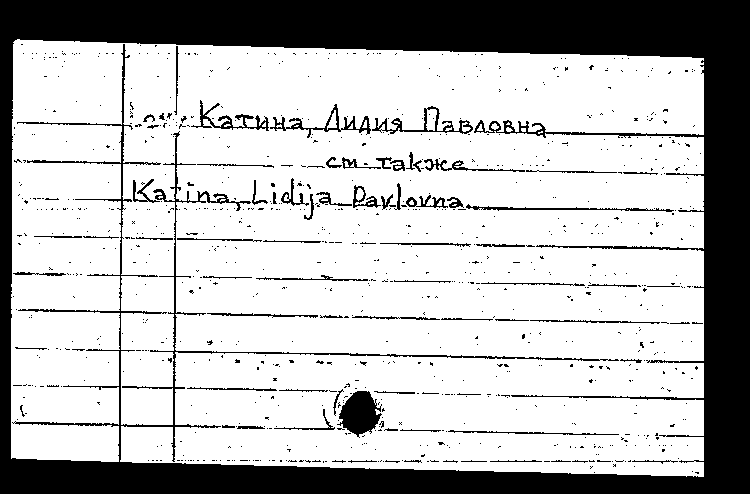 Катина, Лидия Павловна
см. также
Katina, Lidija Pavlovna.